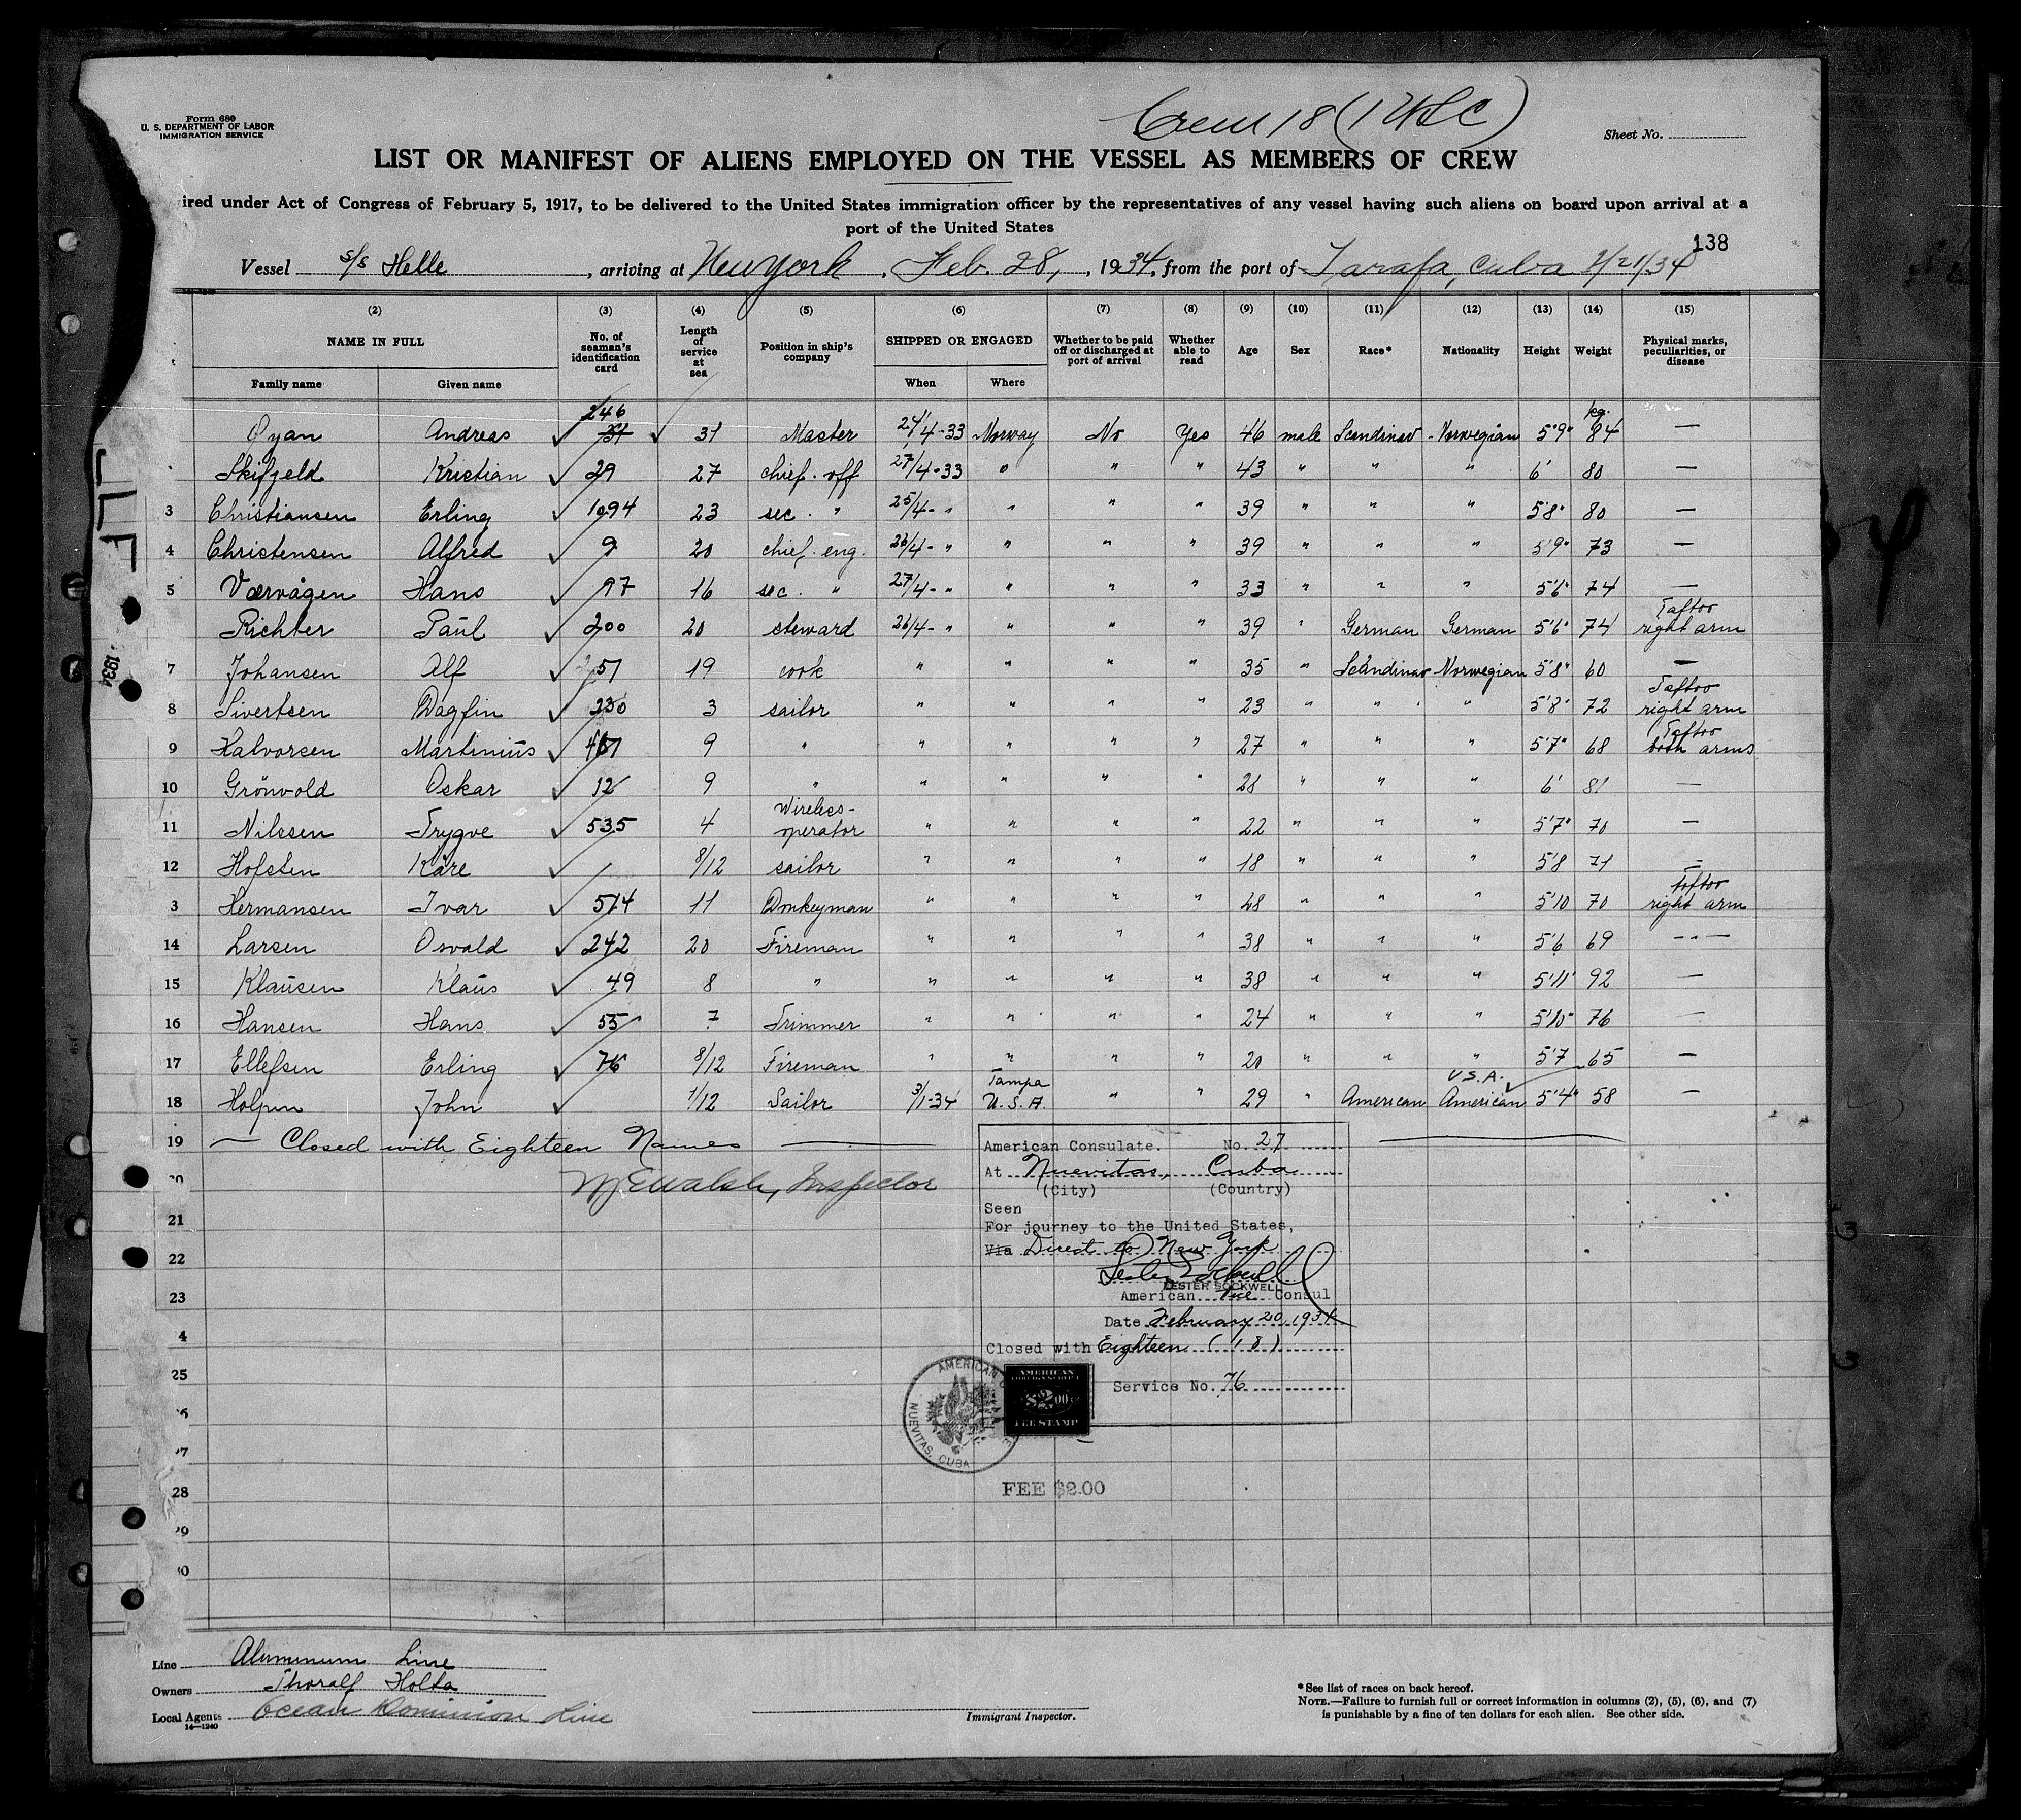 Form 680
U. S. DEPARTMENT OF LABOR
IMMIGRATION SERVICE
Crew 18 (1 USC)
Sheet No.
LIST OR MANIFEST OF ALIENS EMPLOYED ON THE VESSEL AS MEMBERS OF CREW
ired under Act of Congress of February 5, 1917, to be delivered to the United States immigration officer by the representatives of any vessel having such aliens on board upon arrival at a
port of the United States
138
Vessel S/S Helle, arriving at New York, Feb. 28, 1934, from the port of Tarafa, Cuba 2/21/34
(2) (3) (4) (5) (6) (7) (8) (9) (10) (11) (12) (13) (14) (15)
NAME IN FULL No. of seaman's identification card Length of service at sea Position in ship's company SHIPPED OR ENGAGED Whether to be paid off or discharged at port of arrival Whether able to read Age Sex Race* Nationality Height Weight Physical marks, peculiarities, or disease
Family name Given name When Where
Oyan Andreas 246 31 31 Master 24/4-33 Norway No Yes 46 male Scandinav Norwegian 5'9" kg. 84 —
Skifjeld Kristian 29 27 chief. off 27/4-33 " " " 43 " " " 6' 80 —
3 Christiansen Erling 1094 23 sec. " 25/4- " " " " 39 " " " 5'8" 80 —
4 Christensen Alfred 9 20 chief. eng. 26/4- " " " " 39 " " " 5'9" 73 —
5 Værvågen Hans 97 16 sec. " 27/4- " " " " 33 " " " 5'6" 74 —
Richter Paul 200 20 steward 26/4- " " " " 39 " German German 5'6" 74 Tattoo right arm
7 Johansen Alf 51 19 cook " " " " 35 " Scandinav Norwegian 5'8" 60 —
8 Sivertsen Dagfin 230 3 sailor " " " " 23 " " " 5'8" 72 Tattoo right arm
9 Halvorsen Martinius 9 " " " " " 27 " " " 5'7" 68 Tattoo both arms
10 Grönvold Oskar 12 9 " " " " " 28 " " " 6' 81 —
11 Nilssen Trygve 535 4 Wireless-operator " " " " 22 " " " 5'7" 70 —
12 Hofsten Kåre 8/12 sailor " " " " 18 " " " 5'8 71 —
3 Hermansen Ivar 514 11 Donkeyman " " " " 28 " " " 5'10 70 toftoo right arm
14 Larsen Osvald 242 20 Fireman " " " " 38 " " " 5'6 69 — " —
15 Klausen Klaus 49 8 " " " " " 38 " " " 5'11" 92 —
16 Hansen Hans 55 7 Trimmer " " " " 24 " " " 5'10" 76 —
17 Ellefsen Erling 76 8/12 Fireman " " " " 20 " " " 5'7 65 —
18 Holpen John 1/12 Sailor 3/1-34 Tampa U.S.A. " " 29 " American U.S.A. American 5'4" 58 —
19 — Closed with Eighteen Names —
W E Walsh, Inspector
21
22
23
4
25
28
American Consulate. No. 27
At Nuevitas, Cuba
(City) (Country)
Seen
For journey to the United States,
Via Direct to New York
LESTER SOCKWELL
American Vice Consul
Date February 20, 1934
Closed with Eighteen (18)
Service No. 76
AMERICAN
NUEVITAS, CUBA
AMERICAN
FOREIGN SERVICE
$2.00
FEE STAMP
FEE $2.00
1934
Line Aluminum Line
Owners Thoralf Holta
Local Agents Ocean Dominion Line
14—1240
Immigrant Inspector.
*See list of races on back hereof.
NOTE.—Failure to furnish full or correct information in columns (2), (5), (6), and (7)
is punishable by a fine of ten dollars for each alien. See other side.